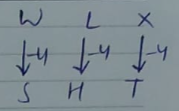 W L X
-4 -4 -4
S H T